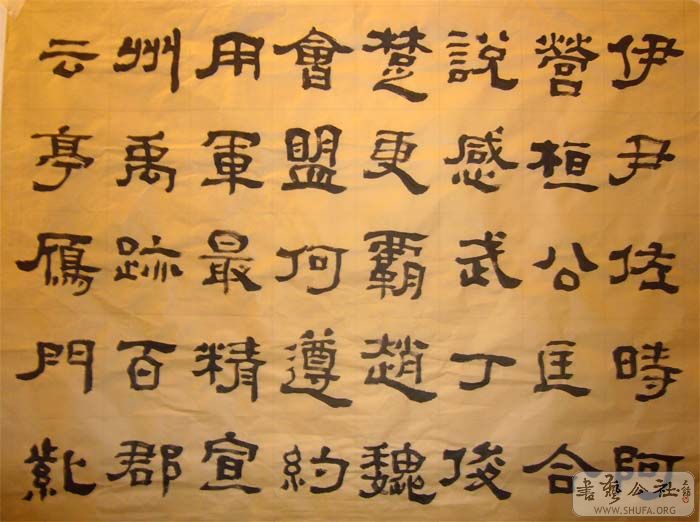 伊尹佐時阿
營桓公匡合
說感武丁俊
楚更霸趙魏
會盟何遵約
用軍最精宣
州禹跡百郡
云亭鴈門紫
書藝公社
WWW.SHUFA.ORG